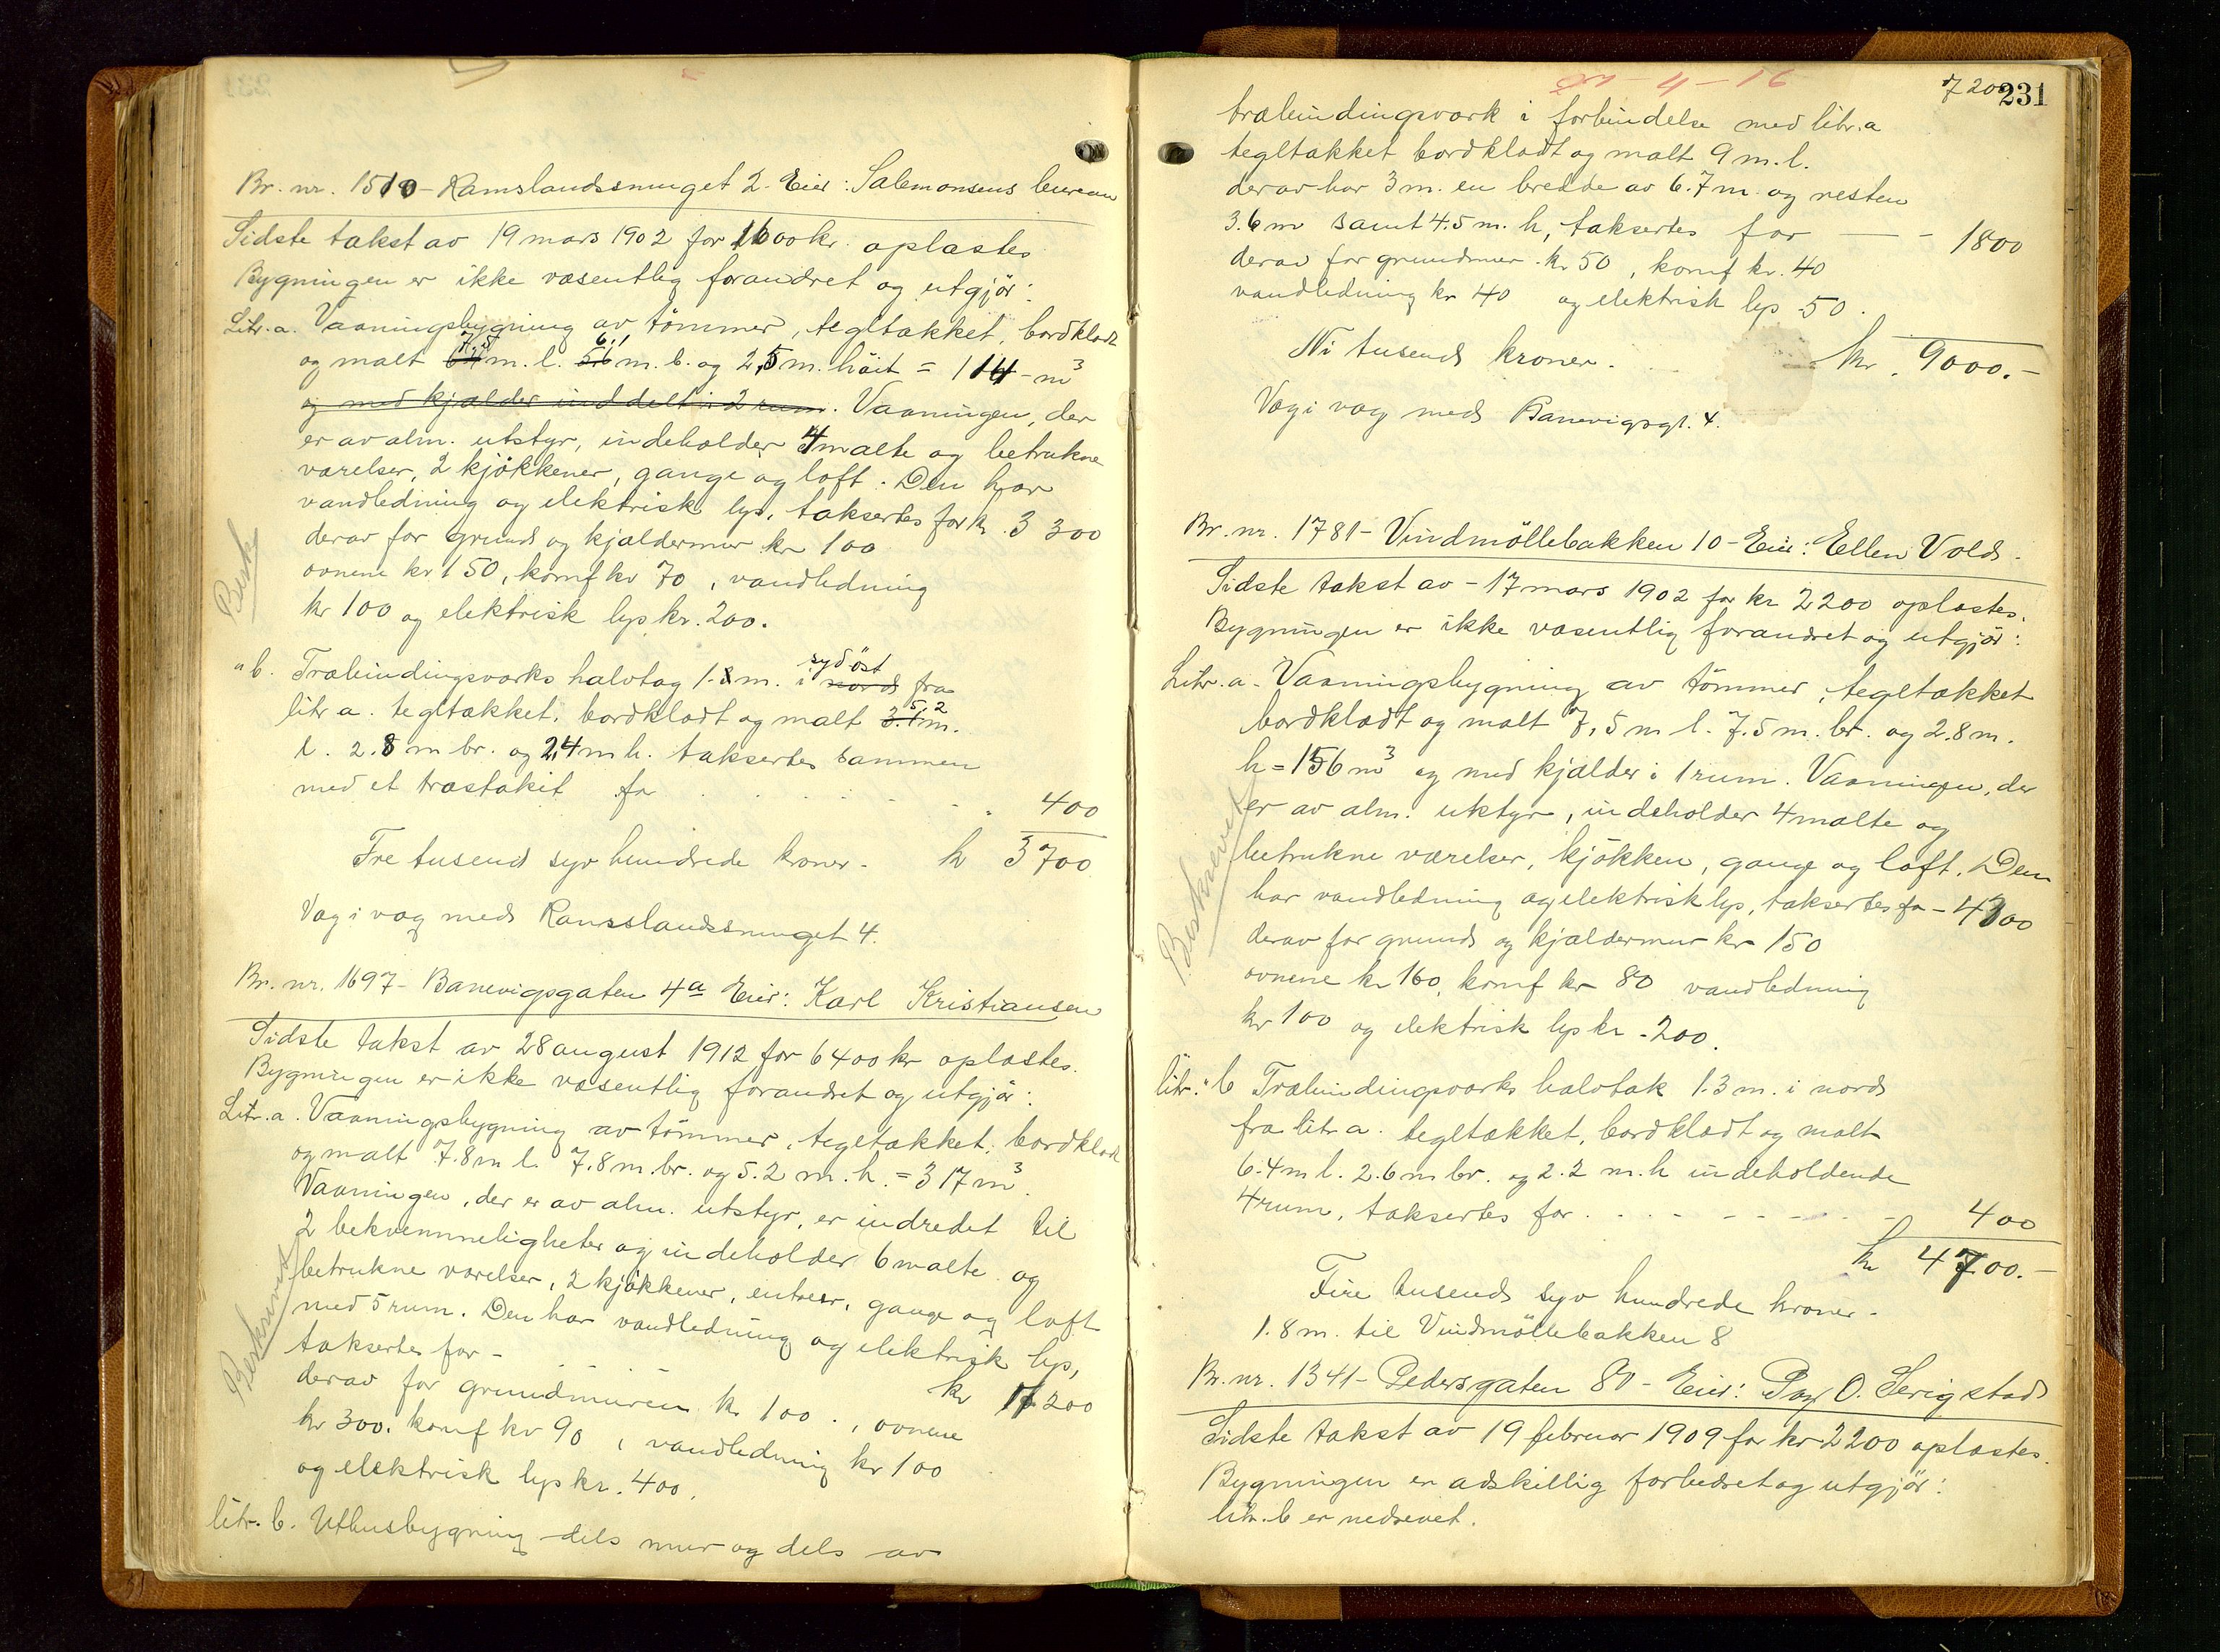 Br. nr. 1510 - Ramslandssmuget 2 - Eier: Salomonsens bureau
Sidste takst av 19 mars 1902 for 1600 kr. oplæstes.
Bygningen er ikke væsentlig forandret og utgjör:
Litr. a. Vaaningsbygning av tömmer, tegltækket, bordklædt
og malt 7.5 m. l. 6.1 m. b. og 2,5 m. höit = 114 - m³
og med kjælder inddelt i 2 rum. Vaaningen, der
er av alm. utstyr, indeholder 4 malte og betrukne
værelser, 2 kjökkener, gange og loft. Den har
vandledning og elektrisk lys, taksertes for kr. 3 300
derav for grund og kjældermur kr 100
ovnene kr 150, komf kr 70, vandledning
kr 100 og elektrisk lys kr. 200.
Besk
" b. Træbindingsverks halvtag 1.8 m. i sydöst nord fra
litr a. tegltækket, bordklædt og malt 5,2 m.
l. 2.8 m br. og 2,4 m h. taksertes sammen
med et træstakit for - - - 400
Tre tusend syv hundrede kroner - kr 3700
Væg i væg med Ramslandssmuget 4.
Br. nr. 1697 - Banevigsgaten 4a Eier: Karl Kristiansen
Sidste takst av 28 august 1912 for 6400 kr oplæstes.
Bygningen er ikke væsentlig forandret og utgjör:
Litr. a. Vaaningsbygning av tömmer, tegltækket, bordklædt
og malt 7.8 m l. 7.8 m. br. og 5.2 m. h. = 317 m³.
Vaaningen, der er av alm. utstyr, er indredet til
2 bekvemmeligheter og indeholder 6 malte og
betrukne værelser, 2 kjökkener, entreer, gange og loft
med 5 rum. Den har vandledning og elektrisk lys,
taksertes for - - - kr 7200
derav for grundmuren kr 100., ovnene
kr 300, komf kr 90, vandledning kr 100
og elektrisk lys kr. 400.
Beskrevet
litr. b. Uthusbygning dels mur og dels av
4 - 16
7 200
231
træbindingsverk i forbindelse med litr. a
tegltækket bordklædt og malt 9 m. l.
derav har 3 m. en bredde av 6.7 m. og resten
3.6 m samt 4.5 m. h, taksertes for — - 1800
derav for grundmur kr 50, komf kr. 40
vandledning kr 40 og elektrisk lys 50.
Ni tusend kroner. . . . kr. 9000.-
Væg i væg med Banevigsgt. 4.
Br. nr. 1781 - Vindmöllebakken 10 - Eier: Ellen Vold.
Sidste takst av - 17 mars 1902 for kr 2200 oplæstes.
Bygningen er ikke væsentlig forandret og utgjör:
Litr. a. Vaaningsbygning av tömmer, tegltækket
bordklædt og malt 7,5 m l. 7.5 m. br. og 2.8 m.
h = 156 m³ og med kjælder i 1 rum. Vaaningen, der
er av alm. utstyr, indeholder 4 malte og
betrukne værelser, kjökken, gange og loft. Den
har vandledning og elektrisk lys, taksertes for - 4300
derav for grund og kjældermur kr 150
ovnene kr 160, komf kr 80 vandledning
kr 100 og elektrisk lys kr - 200.
Beskrevet
litr. " b Træbindingsverks halvtak 1.3 m. i nord
fra litr a. tegltækket, bordklædt og malt
6.4 m l. 2.6 m br. og 2.2 m. h indeholdende
4 rum, taksertes for . . . - - - 400
kr 4700.-
Fire tusend syv hundrede kroner -
1.8 m. til Vindmöllebakken 8
Br. nr. 1341 - Pedersgaten 80 - Eier: O. Serigstad
Sidste takst av 19 februar 1909 for kr 2200 oplæstes.
Bygningen er adskillig forbedret og utgjör:
litr. b er nedrevet.